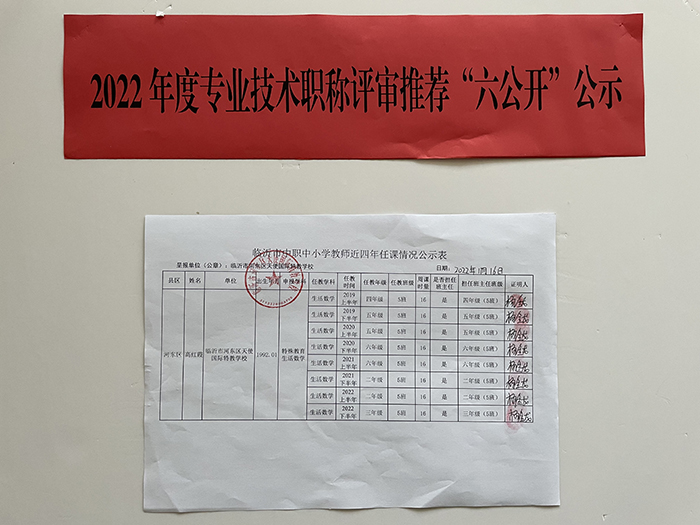 2022年度专业技术职称评审推荐“六公开”公示
临沂市中职中小学教师近四年任课情况公示表
呈报单位（公章）：临沂市河东区天使国际特教学校 日期：2022年11月16日
县区 姓名 单位 出生年月 申报学科 任教学科 任教时间 任教年级 任教班级 周课时量 是否担任班主任 担任班主任班级 证明人
河东区 高红霞 临沂市河东区天使国际特教学校 1992.01 特殊教育生活数学
生活数学 2019上半年 四年级 5班 16 是 四年级（5班）
生活数学 2019下半年 五年级 5班 16 是 五年级（5班）
生活数学 2020上半年 五年级 5班 16 是 五年级（5班）
生活数学 2020下半年 六年级 5班 16 是 六年级（5班）
生活数学 2021上半年 六年级 5班 16 是 六年级（5班）
生活数学 2021下半年 二年级 5班 16 是 二年级（5班）
生活数学 2022上半年 二年级 5班 16 是 二年级（5班）
生活数学 2022下半年 三年级 5班 16 是 三年级（5班）